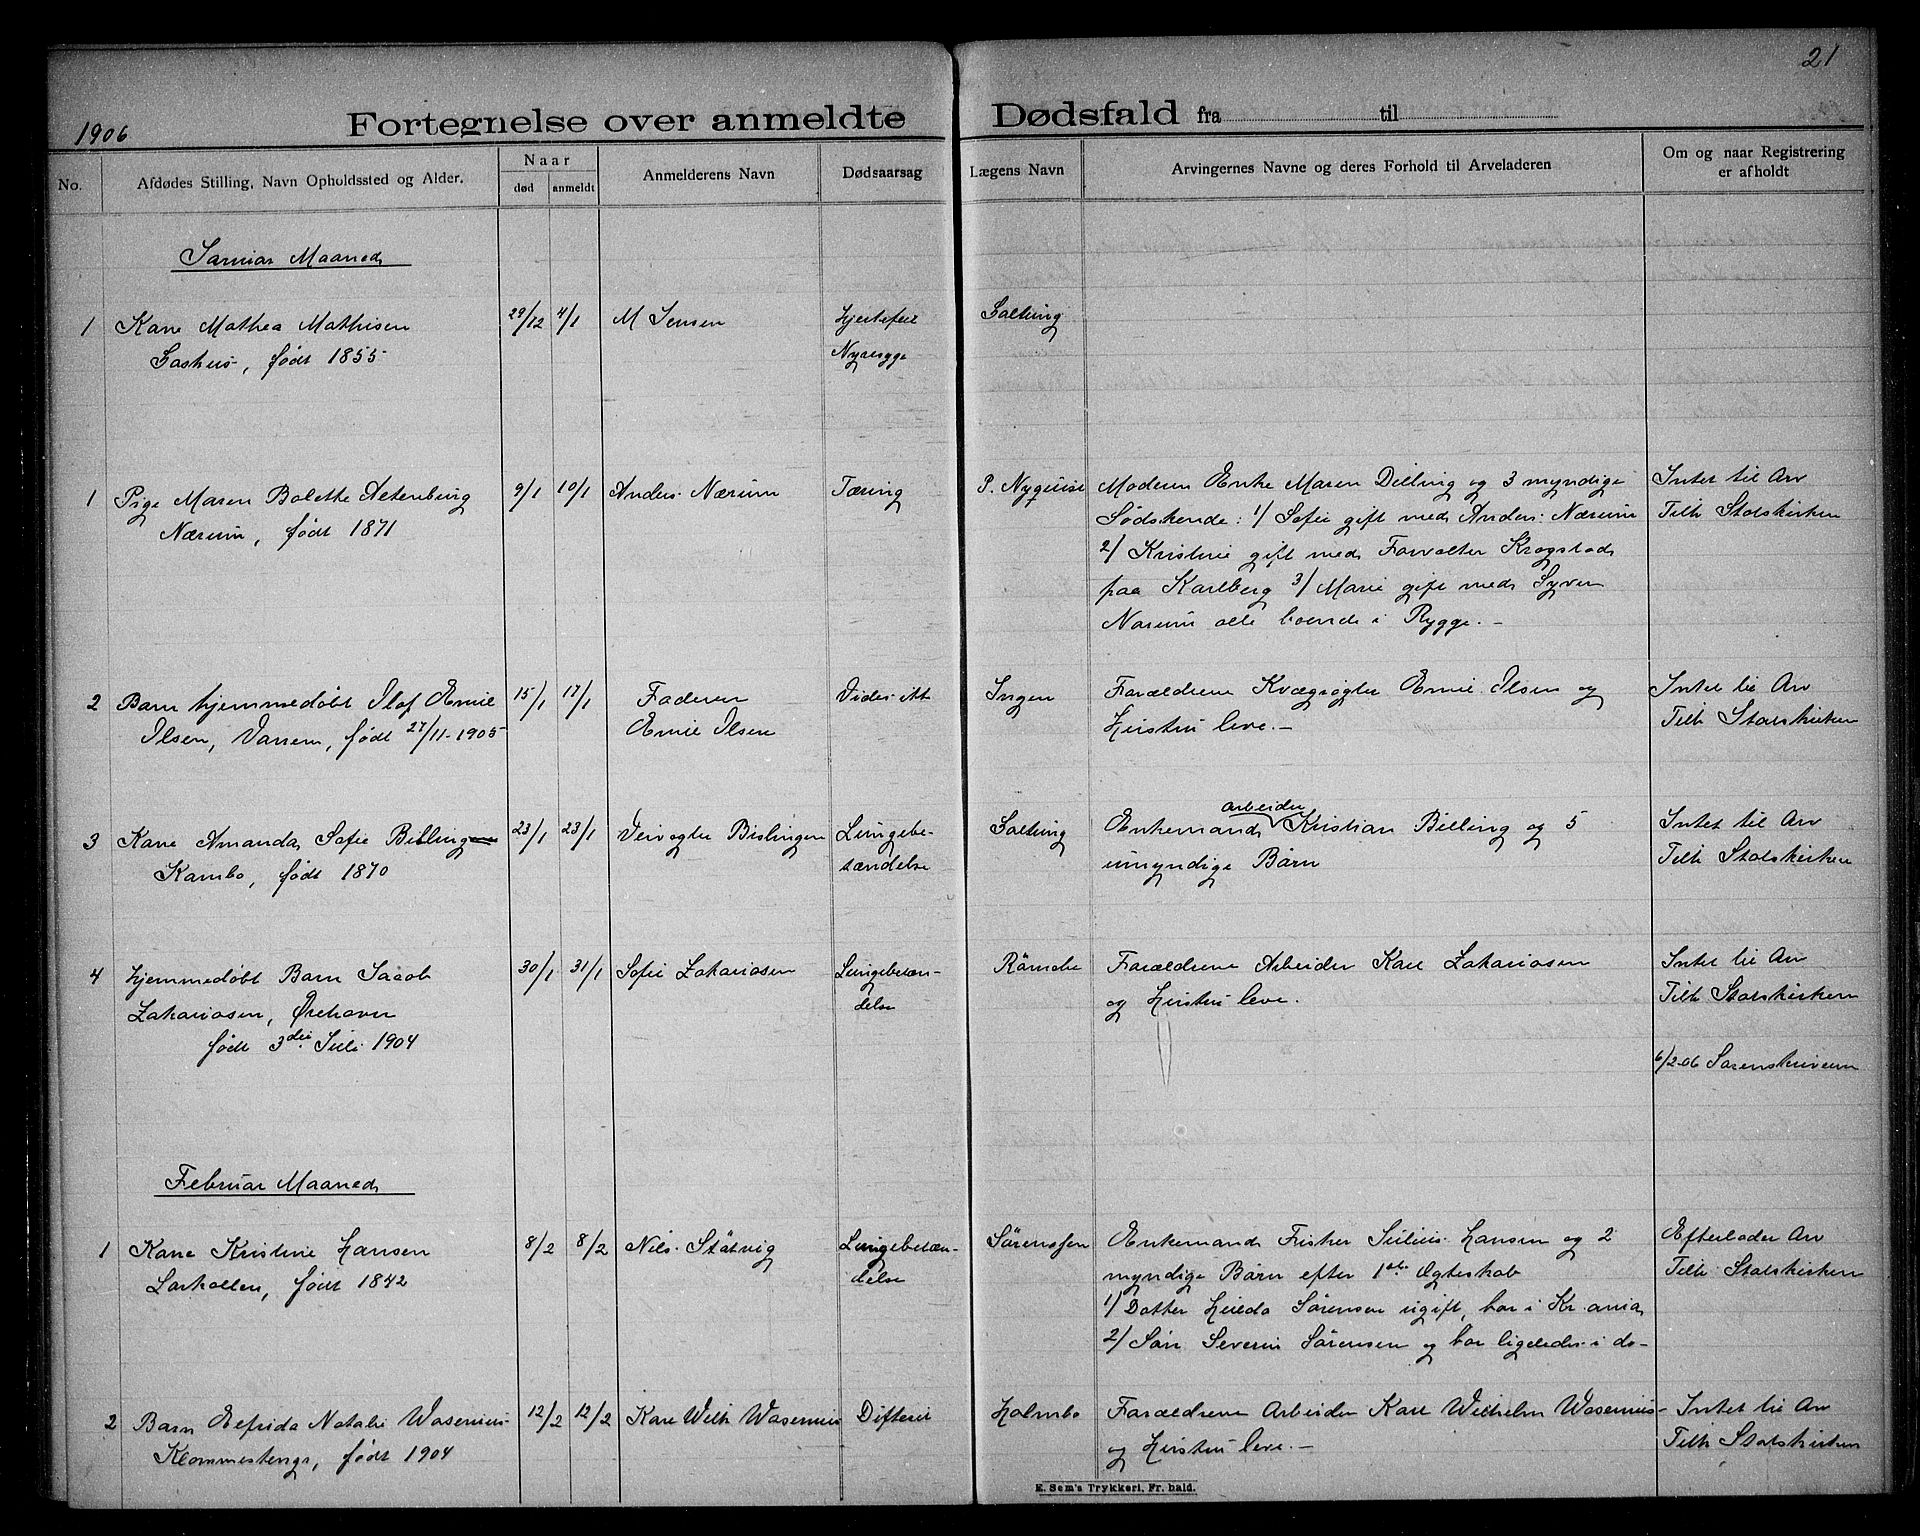 21
1906
Fortegnelse over anmeldte Dødsfald fra til
No.
Afdødes Stilling, Navn Opholdssted og Alder.
Naar
død
anmeldt
Anmelderens Navn
Dødsaarsag
Lægens Navn
Arvingernes Navne og deres Forhold til Arveladeren
Om og naar Registrering
er afholdt
Januar Maaned
1 Kone Mathea Mathisen 29/12 4/1 M Jensen Hjertefeil Soelting
født 1855 Nyresyge
1 Pige Maren Bolette 9/1 10/1 Anders Nærum Tæring P. Nyquist Moderen Enke Maren Dilling og 3 myndige Intet til Arv
Nærum, født 1871 Sødskende: 1/ Sofie gift med Anders Nærum Tilh Statskirken
2/ Kristine gift med Forvalter Krogstad
paa Karlberg 3/ Marie gift med Syver
Nærum alle boende i Rygge. -
2 Barn hjemmedøbt Olaf Emil 15/1 17/1 Faderen Vides ikke Ingen Forældrene Kvægrøgter Emil Olsen og Intet til Arv
Olsen, Varren, født 27/11-1905 Emil Olsen Hustru leve. - Tilh Statskirken
arbeider
3 Kone Amanda Sofie Billing 23/1 23/1 Veivogter Bislingen Lungebe- Soelting Enkemand Kristian Billing og 5 Intet til Arv
Kambo, født 1870 tændelse umyndige Børn Tilh Statskirken
4 Hjemmedøbt Barn Jacob 30/1 31/1 Sofie Zakariasen Lungebetæn- Römcke Forældrene Arbeider Karl Zakariasen Intet til Arv
Zakariasen, Ørehavn delse og Hustru leve. Tilh Statskirken
født 3die Juli 1904
6/2-06 Sorenskriveren
Februar Maaned
1 Kone Kristine Hansen 8/2 8/2 Nils Støtvig Lungebetæn- Sørenssen Enkemand Fisker Julius Hansen og 2 Efterlader Arv
Larkollen, født 1842 delse myndige Børn efter 1ste Ægteskab Tilh Statskirken
1/ Datter Hulda Sørensen ugift, bor i Kr.ania
2/ Søn Severin Sørensen og bor ligeledes i do-
2 Barn Elfrida Natalie Wasenius 12/2 12/2 Karl Wilh Wasenius Difterit Holmbo Forældrene Arbeider Karl Wilhelm Wasenius Intet til Arv
Klommestenge, født 1904 og Hustru leve. - Tilh Statskirken
E. Sem's Trykkeri, Fr. hald.